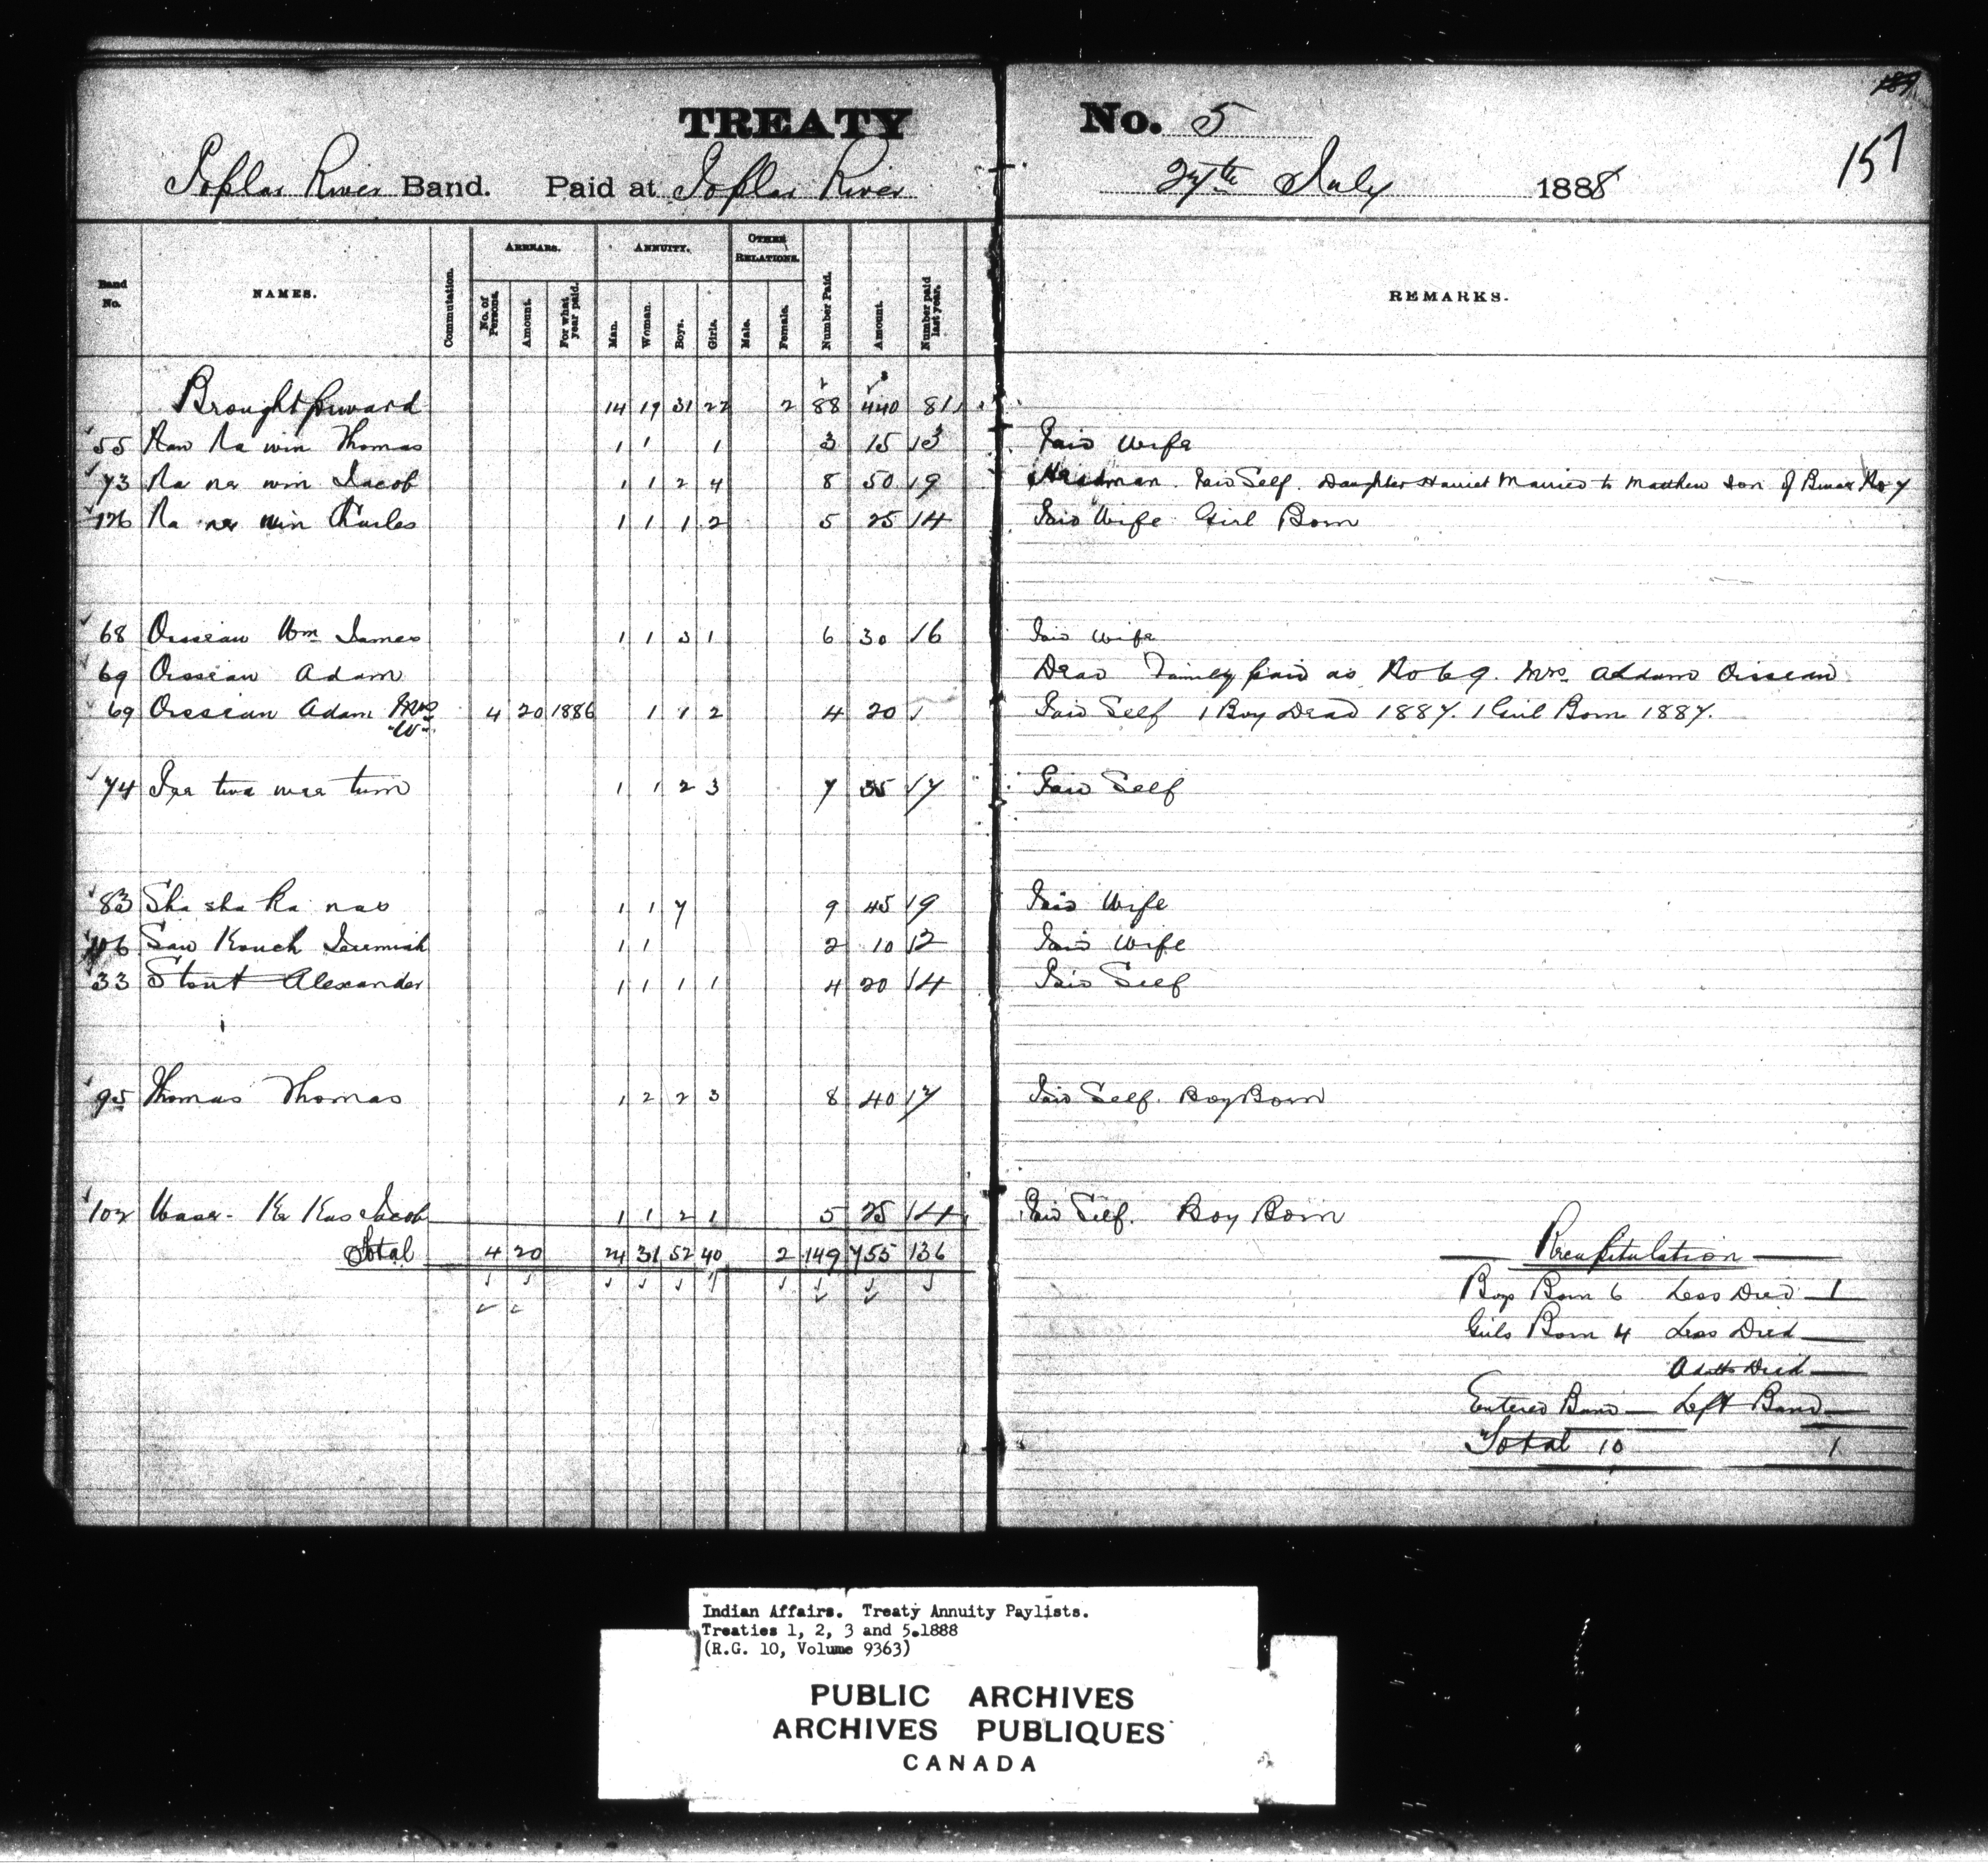 TREATY No. 5
157
Poplar River Band. Paid at Poplar River 27th July 1888
Band No. NAMES. Commutation. ARREARS. No. of Persons. Amount. For what year paid. ANNUITY. Man. Woman. Boys. Girls. OTHER RELATIONS. Male. Female. Number Paid. Amount. Number paid last year. REMARKS.
Brought forward 14 19 31 22 2 88 440 81
55 Naw Na win Thomas 1 1 1 3 15 3 Paid Wife
73 Na na win Jacob 1 1 2 4 8 50 9 Headman. Paid Self. Daughter Harriet Married to Matthew Son of No 7
126 Na na win Charles 1 1 1 2 5 25 4 Paid Wife Girl Born
68 Osseau Wm James 1 1 3 1 6 30 6 Paid Wife
69 Osseau Adam Dead Family paid as No 69. Mrs Addam Osseau
69 Osseau Adam Mrs 4 20 1886 1 1 2 4 20 Paid Self 1 Boy Dead 1887. 1 Girl Born 1887.
74 twa tum 1 1 2 3 7 35 7 Paid Self
83 Sha sha ka nas 1 1 7 9 45 9 Paid Wife
106 Saw Kouch Jeremiah 1 1 2 10 2 Paid Wife
33 Stout Alexander 1 1 1 1 4 20 4 Paid Self
95 Thomas Thomas 1 2 2 3 8 40 7 Paid Self. Boy Born
102 Ke Kas Jacob 1 1 2 1 5 25 4 Paid Self. Boy Born
Total 4 20 24 31 52 40 2 149 755 136
Recapitulation
Boys Born 6 Less Died 1
Girls Born 4 Less Died —
Adults Died —
Entered Band — Left Band —
Total 10 1
Indian Affairs. Treaty Annuity Paylists.
Treaties 1, 2, 3 and 5.1888
(R.G. 10, Volume 9363)
PUBLIC ARCHIVES
ARCHIVES PUBLIQUES
CANADA